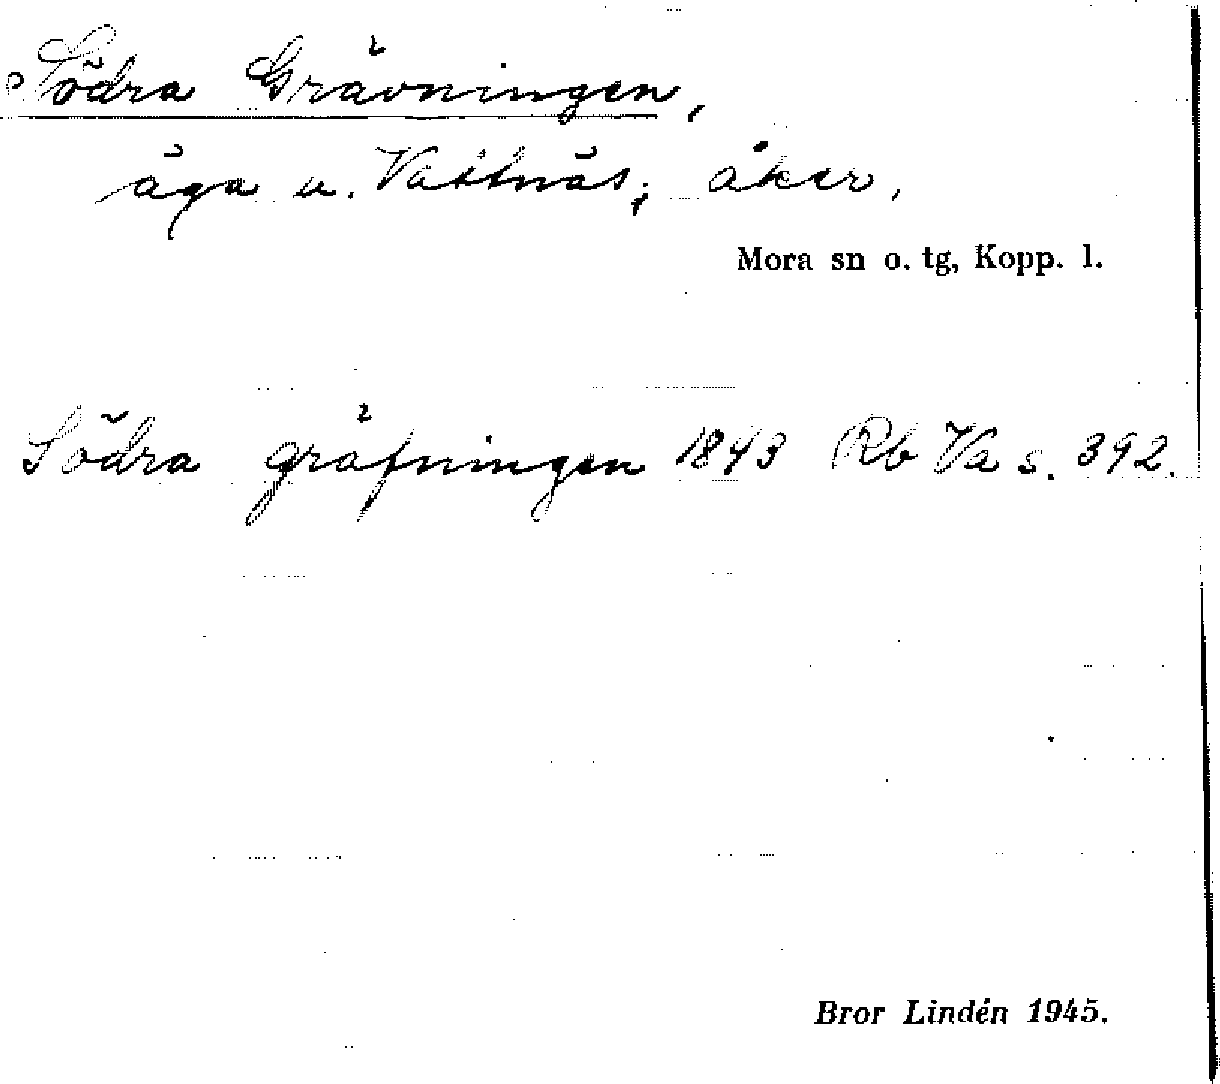 Södra Grävningen,
äga u. Vattnäs; åker,
Mora sn o. tg, Kopp. l.
Södra gräfningen 1843 Rb Va s. 392.
Bror Lindén 1945.